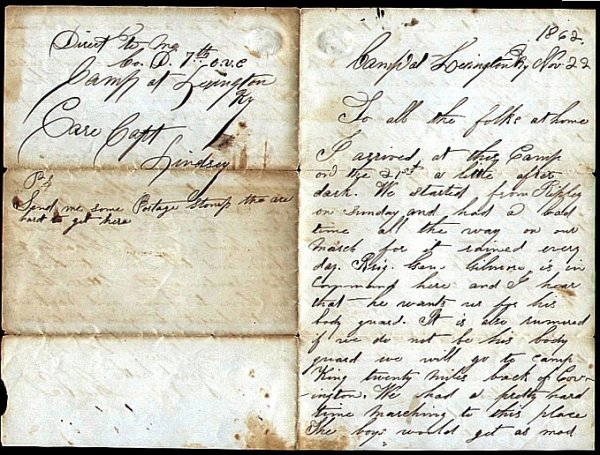 Direct to Me
Co. D. 7th O.V.C
Camp at Lexington
Ky
Care Capt
Lindsey
P.S
Send me some Postage Stamp tha are
hard to get here
1862.
Camp at Lexington Ky Nov. 22
To all the folks at home
I arrived at this Camp
on the 21st a little after
dark. We started from Ripley
on Sunday and had a bad
time all the way on our
march for it rained every
day. Brig. Gen. Gilmore is in
Command here and I hear
that he wants us for his
body guard. It is also rumured
if we do not be his body
guard we will go to camp
King twenty miles back of Cov-
ington. We had a pretty hard
time marching to this place
The boys would get as mad